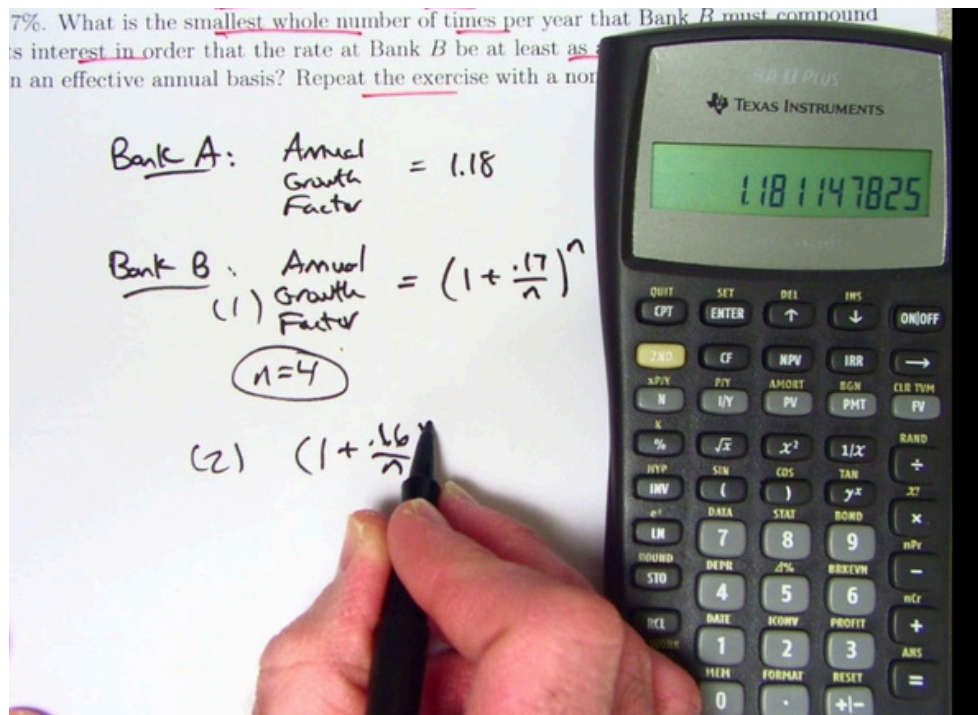 7%. What is the smallest whole number of times per year that Bank B must compound
s interest in order that the rate at Bank B be at least as
n an effective annual basis? Repeat the exercise with a nor
Bank A: Annual Growth Factor = 1.18
Bank B: (1) Annual Growth Factor = (1 + .17/n)^n
n=4
(2) (1 + .16/n
BA II PLUS
TEXAS INSTRUMENTS
1.181147825
QUIT SET DEL INS
CPT ENTER ↑ ↓ ON|OFF
2ND CF NPV IRR →
xP/Y P/Y AMORT BGN CLR TVM
N I/Y PV PMT FV
K RAND
% √x x² 1/x ÷
HYP SIN COS TAN x!
INV ( ) yˣ ×
eˣ DATA STAT BOND nPr
LN 7 8 9 −
ROUND DEPR Δ% BRKEVN nCr
STO 4 5 6 +
DATE ICONV PROFIT ANS
RCL 1 2 3 =
MEM FORMAT RESET
0 . +|−